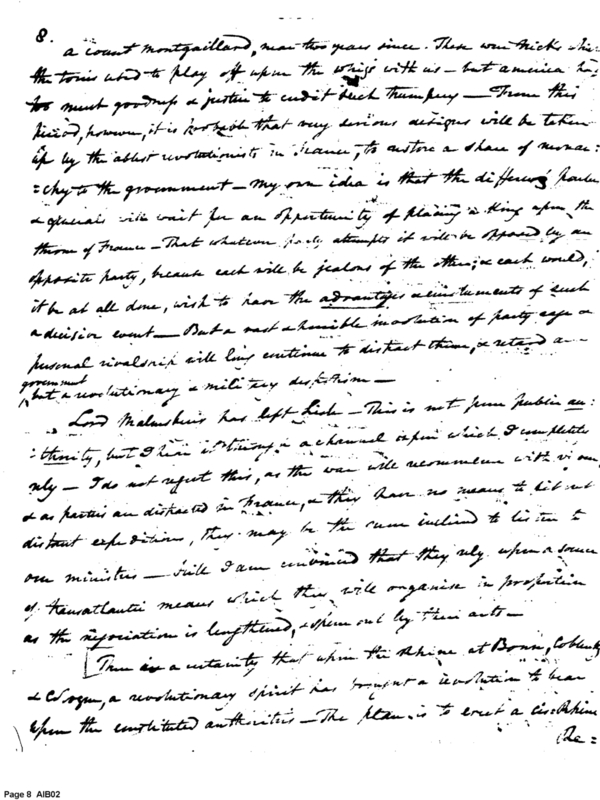 8.
a Count Montgaillard, near two years since. These were tricks
the tories used to play off upon the whigs with us – but america has
too much goodness & justice to credit such trumpery – From this
period, however, it is probable that very serious designs will be taken
up by the ablest revolutionists in France, to restore a share of monar:
:chy to the government – My own idea is that the different parties
& generals will wait for an opportunity of placing a King upon the
throne of France – That whatever party attempts it will be opposed by an
opposite party, because each will be jealous of the other; & each would,
it be at all done, wish to have the advantages & emoluments of such
a decisive event – But a vast & horrible involution of party rage &
personal rivalship will long continue to distract them, & retard a
government
but a revolutionary & military despotism –
Lord Malmsbury has left Lisle – This is not from public au:
:thority, but I hear it through a channel upon which I completely
rely – I do not regret this, as the war will recommence with
& as parties are distracted in France, & they have no means to fit out
distant expeditions, they may be the more inclined to listen to
our ministers – Still I am convinced that they rely upon a source
of transatlantic means which they will organise in proportion
as the negociation is lengthened, & open out by their acts –
[There is a certainty that upon the Rhine at Bonn, Coblentz
& Cologn, a revolutionary spirit has brought a revolution to bear
upon the constituted authorities – The plan is to erect a cis-Rhine
Re =
Page 8 AIB02